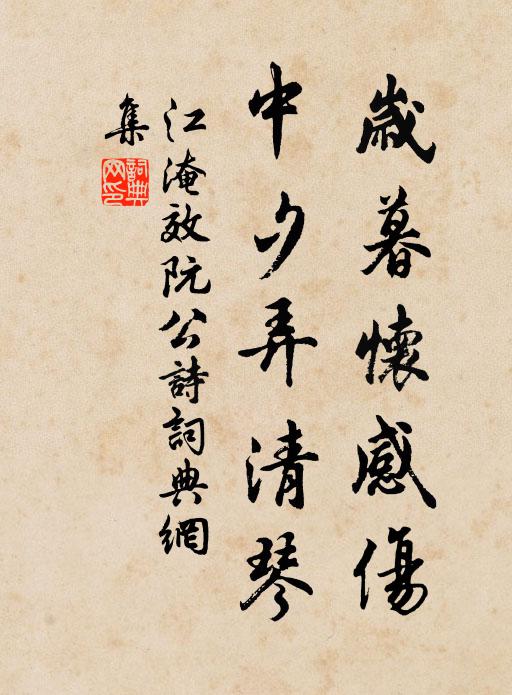 歲暮懷感傷
中夕弄清琴
江淹效阮公詩詞典網
集
詞典網印